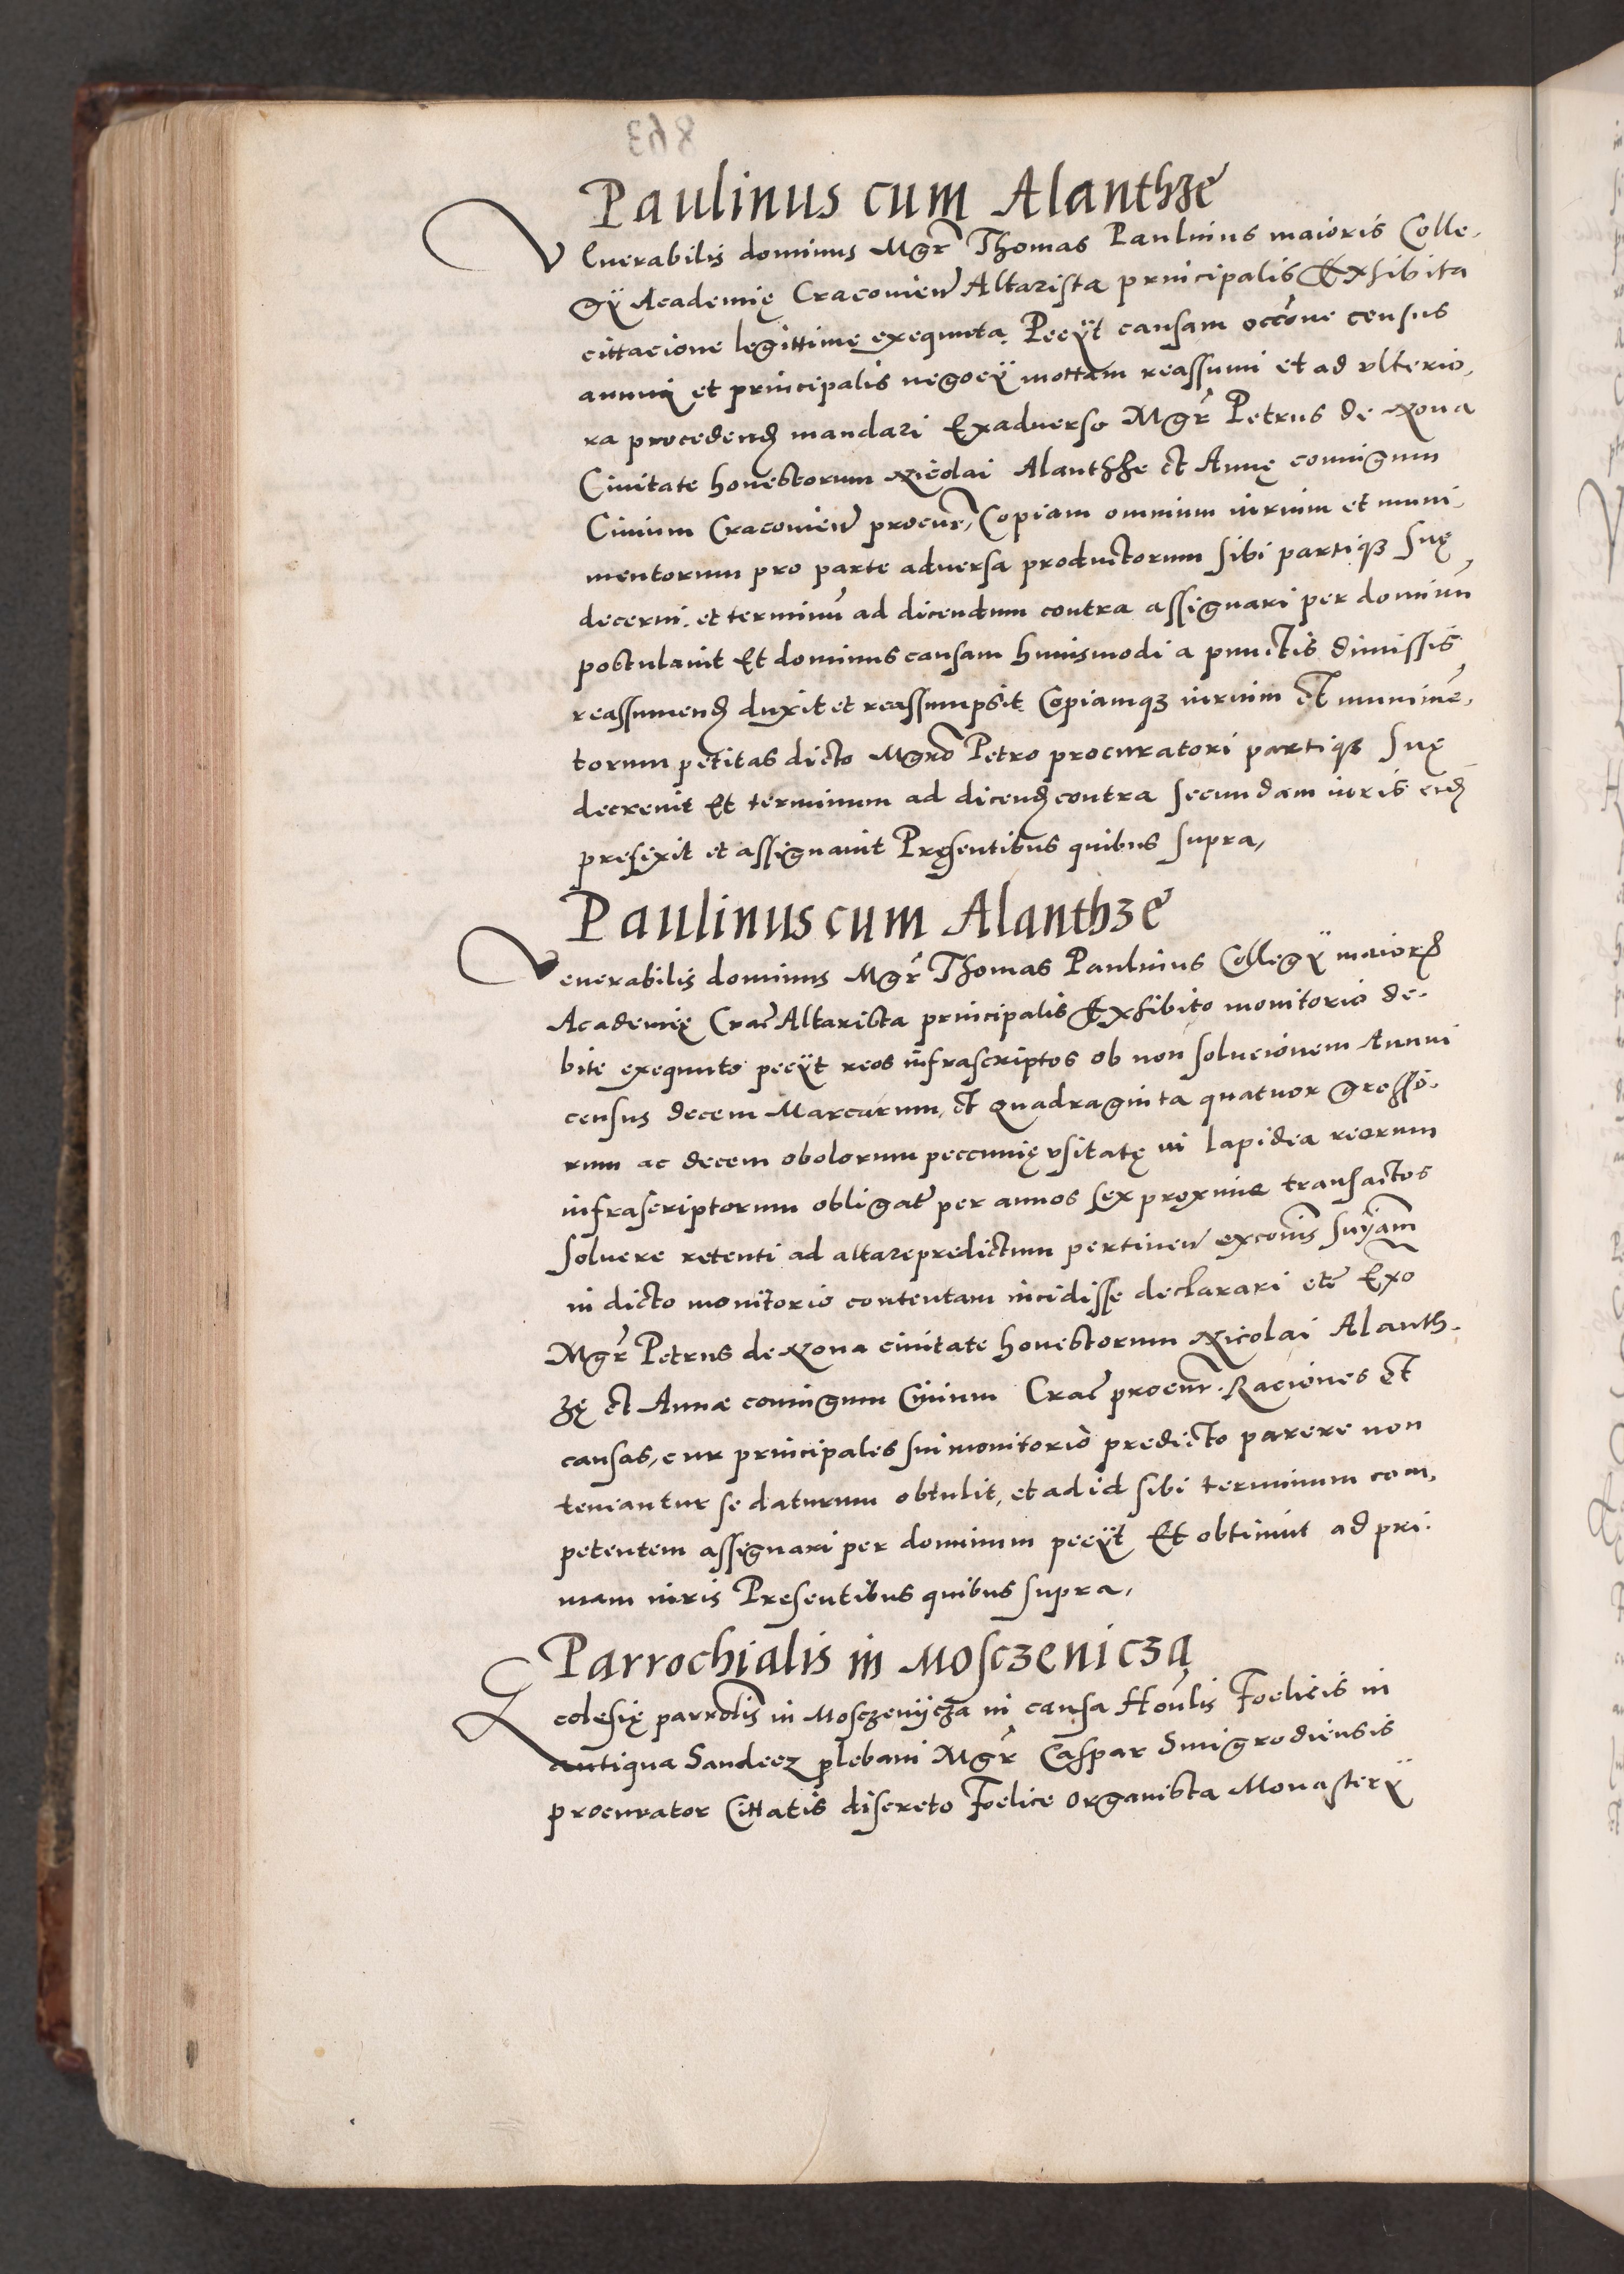 Paulinus cum Alanthze
Venerabilis dominus Mgr Thomas Paulinus maioris Colle-
gÿ Academię Cracouien Altarista principalis Exhibita
cittacione legittime exequuta. Pecÿt causam occõne census
annui et principalis negocÿ mottam reassumi et ad vlterio-
ra procedend mandari Exaduerso Mgr Petrus de Noua
Ciuitate honestorum Nicolai Alanthże et Annę coniugum
Ciuium Cracouien procur, Copiam omnium iurium et muni-
mentorum pro parte aduersa productorum sibi partiqz suę
decerni. et terminũ ad dicendum contra assignari per dominũ
postulauit Et dominus causam huiusmodi a punctis dimissis
reassumend duxit et reassumpsit Copiamqz iurium et munimẽ-
torum petitas dicto Mgrõ Petro procuratori partiqz suę
decreuit Et terminum ad dicend contra secundam iuris eid
prefixit et assignauit Pręsentibus quibus supra,
Paulinus cum Alanthze
Venerabilis dominus Mgr Thomas Paulinus Collegÿ maioris
Academię Crac Altarista principalis Exhibito monitorio de-
bite exequuto pecÿt reos infrascriptos ob non solucionem Annui
census decem Marcarum, et Quadraginta quatuor grosso-
rum ac decem obolorum peccunię vsitatę in lapidea reorum
infrascriptorum obligat per annos sex proxime transactos
soluere retenti ad altare predictum pertinen excõnis snÿam
in dicto monitorio contentam incidisse declarari etc Exo
Mgr Petrus de Noua ciuitate honestorum Nicolai Alanth-
zę et Annæ coniugum Ciuium Crac procur. Raciones et
causas, cur principales sui monitorio predicto parere non
teneantur se daturum obtulit, et ad id sibi terminum com-
petentem assignari per dominum pecÿt Et obtinuit ad pri-
mam iuris Presentibus quibus supra,
Parrochialis in Mosczenicza
Ecclesię parrolis in Mosczenÿcza in causa Honlis Foelicis in
antiqua Sandecz plebani Mgr Caspar Smigrodiensis
procurator Cittatis discreto Foelice Organista Monasterÿ